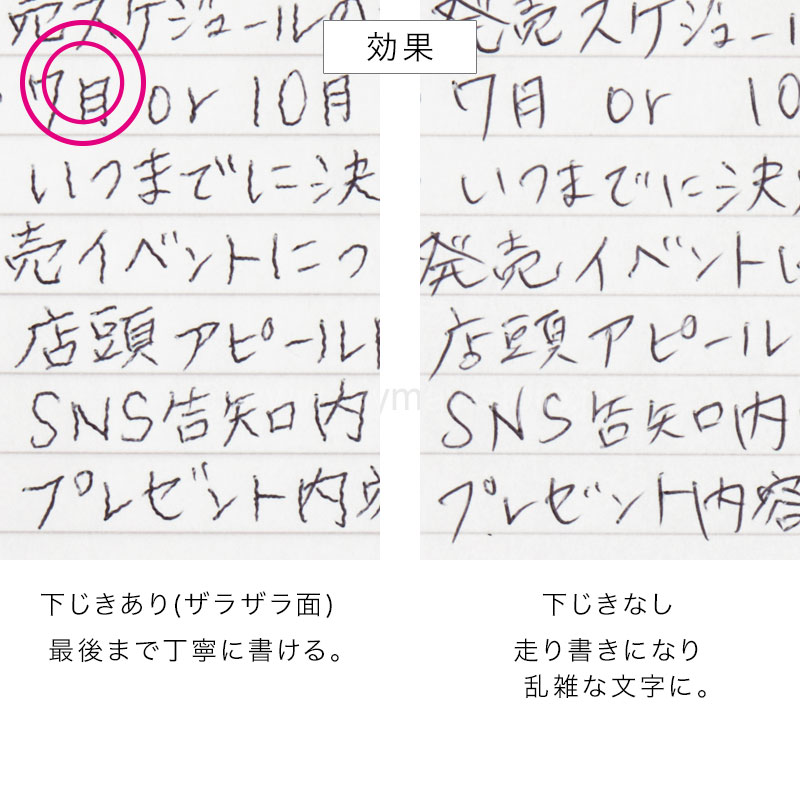 効果
売スケジュールの
7月 or 10月
いつまでに決
売イベントにつ
店頭アピール
SNS告知口内
プレゼント内容
発売スケジュー
7月 or 10
いつまでに決
発売イベント
店頭アピール
SNS告知口内
プレゼント内容
下じきあり(ザラザラ面)
最後まで丁寧に書ける。
下じきなし
走り書きになり
乱雑な文字に。